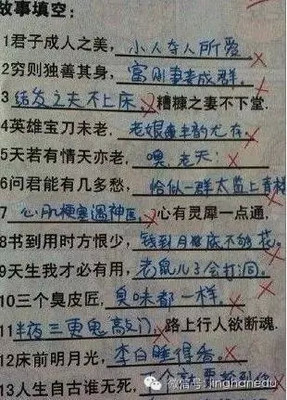 故事填空:
1君子成人之美, 小人夺人所爱
2穷则独善其身, 富则妻妾成群.
3 结发之夫不上床, 糟糠之妻不下堂.
4英雄宝刀未老, 老娘丰韵尤存.
5天若有情天亦老, 噢,老天:
6问君能有几多愁, 恰似一群太监上青楼
7 心肌梗塞遇神医, 心有灵犀一点通.
8书到用时方恨少, 钱到月底不够花.
9天生我才必有用, 老鼠儿子会打洞.
10三个臭皮匠, 臭味都一样.
11半夜三更鬼敲门, 路上行人欲断魂.
12床前明月光, 李白睡得香.
13人生自古谁无死,
微信号: jinghanedu